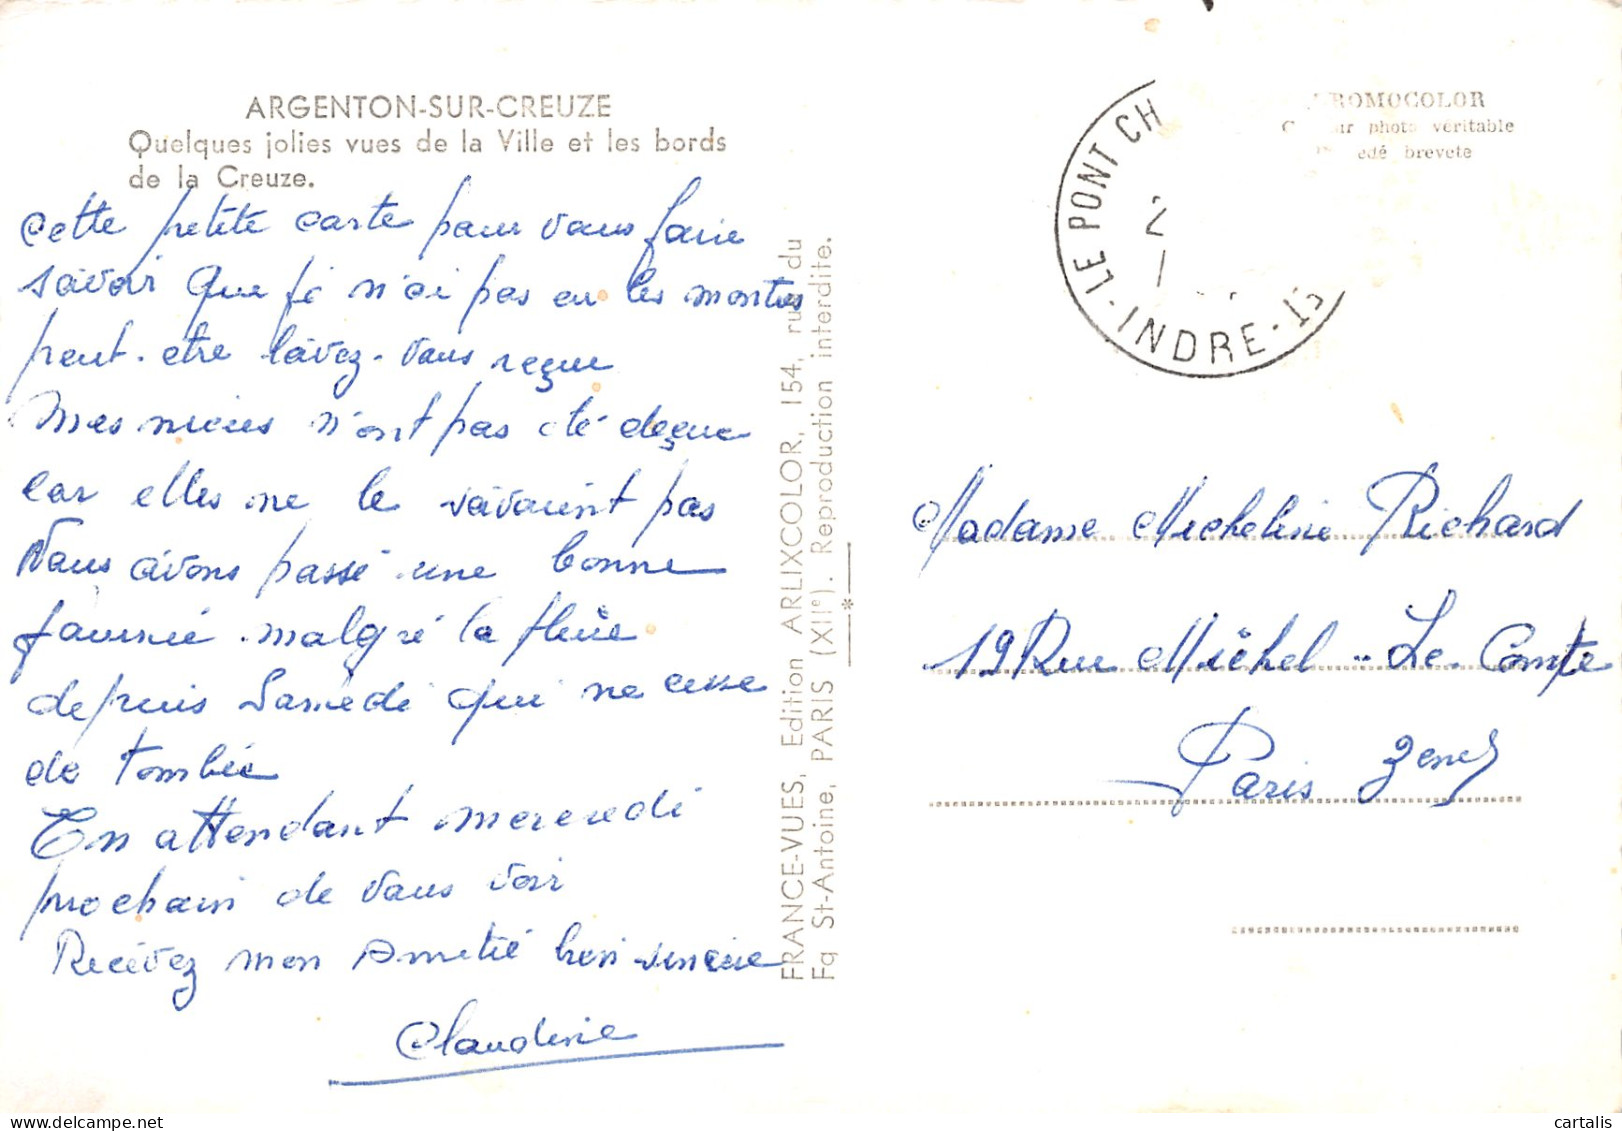 ARGENTON-SUR-CREUZE
Quelques jolies vues de la Ville et les bords
de la Creuze.
Cette petite carte pour vous faire
savoir que je n'ai pas eu les montres
peut-etre l'avez-vous reçue
Mes nieces n'ont pas été deçue
car elles ne le savaient pas
Nous avons passé une bonne
journée malgré la pluie
depuis Samedi qui ne cesse
de tombée
En attendant mercredi
prochain de vous voir
Recevez mon Amitié bien sincère
Claudine
FRANCE-VUES, Edition ARLIXCOLOR, 154, rue du
Fg St-Antoine, PARIS (XIIe). Reproduction interdite.
LE PONT CH
2
1
-INDRE-
ROMOCOLOR
photo véritable
edé brevete
Madame Micheline Richard
19 Rue Michel-Le-Comte
Paris 3eme